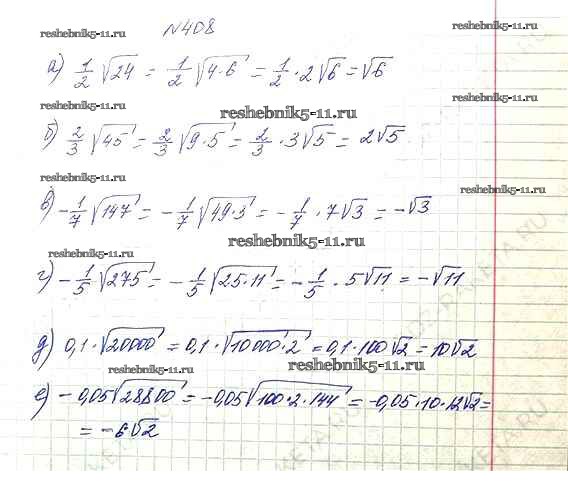 reshebnik5-11.ru
№408
reshebnik5-11.ru
а) 1/2 √24 = 1/2 √4·6 = 1/2 · 2√6 = √6
reshebnik5-11.ru
reshebnik5-11.ru
reshebnik5-11.ru
б) 2/3 √45 = 2/3 √9·5 = 2/3 · 3√5 = 2√5
reshebnik5-11.ru
reshebnik5-11.ru
в) -1/7 √147 = -1/7 √49·3 = -1/7 · 7√3 = -√3
reshebnik5-11.ru
reshebnik5-11.ru
г) -1/5 √275 = -1/5 √25·11 = -1/5 · 5√11 = -√11
д) 0,1·√20000 = 0,1·√10000·2 = 0,1·100√2 = 10√2
reshebnik5-11.ru
reshebnik5-11.ru
е) -0,05√28800 = -0,05√100·2·144 = -0,05·10·12√2 =
= -6√2